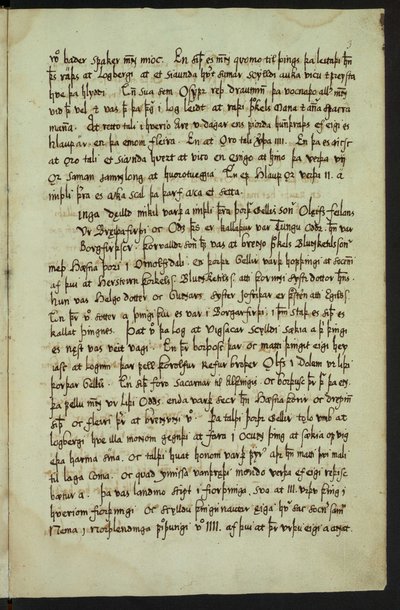 vº bader spaker mn̄ mioc. En siþ es mn̄ quomo til þings þa leitaþi hn̄
þs raþs at Logbergi at et siaunda hvert sumar scylldi auka vicu & freista
hve þa hlyddi. En sva sem Osyfr reþ draumīn þa vocnaþo aller mn̄
viþ þ vel & vas þ þa þeg i log leidt at raþi þkels Mana & aña spacra
maña. At retto tali i hverio are v dagar ens fiorda hunþraþs ef eigi es
hlaup ar en þa enom fleira. En at oro tali þa IIII. En þa es aucsc
at oro tali et siaunda hvert at vico en engo at hino þa verþa vij
or saman iamnlong at hvorotveggia. En ef Hlaup or verþa II. a
milli þra es auka scal þa þarf auca et setta.
Inga dęlld mikil varþ a milli þra þorþ Gellis son Oleifs feilans
Ur Breiþafirþi oc Odds þs er kallaþur var Tungu Oddr hn̄ var
Borgfirþscr. Þorvalldr son hn̄ vas at breno þkels Blundketils son
meþ Hæsna þori i Ornolfsdali. En þorþr Gellir varþ hofþingi at socīi
af þvi at Herstein þorkels Blundketils atti þoruni syst dottor hns.
hun var Helgo dotter oc Guñars, syster Jofriþar er þsteīn atti Egils.
En þr vº sotter a þingi þvi es var i Borgarfirþi, i þm staþ es siþ es
kallat þingnes. Þat vº þa log at vigsacar scylldi sękia a þ þingi
es nęst vas vett vangi. En þr borþosc þar oc matti þingit eigi hey
iasc at logum. þar fell þorolfur Refur broþer Olfs i Dolom vr liþi
þorþar Gellis. En siþ foro sacarnar til Alþingis. Oc borþusc þr þ þa en
þa fellu mn̄ vr liþi Odds enda varþ secr hn̄ Hæsna þorir oc drepiñ
siþ oc fleiri þr at brenuni vº. Þa talþi þorþr Gellir tolo vmb at
logbergi hve illa monom gegndi at fara i Ocuñ þing at sękia of vig
eþa harma sina. Oc talþi huat honom varþ fyr aþr hn̄ mætti þvi mali
til laga coma. Oc quaþ ymissa vandræþi mondo verþa ef eigi reþisc
bætur a. Þa vas landino skipt i fiorþunga, svo at III. vrþo þing i
hveriom fiorþungi. Oc scylldu þingunautar eiga hvar sac socner saman
Nema i norþlendinga fiorþungi vº IIII. af þvi at þr vrþu eigi a annat